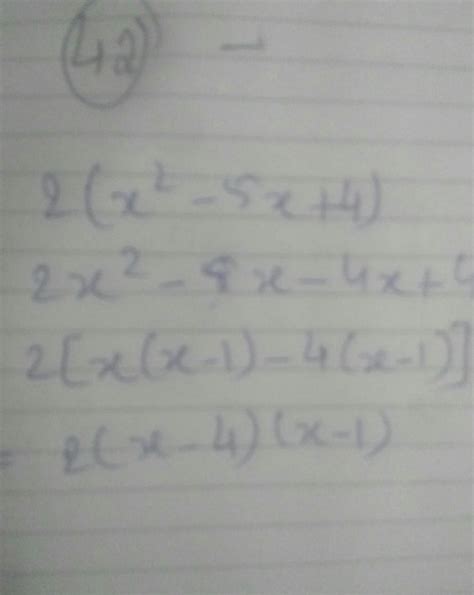 42) -
2(x² - 5x + 4)
2x² - 8x - 4x + 4
2[x(x-1) - 4(x-1)]
= 2(x-4)(x-1)